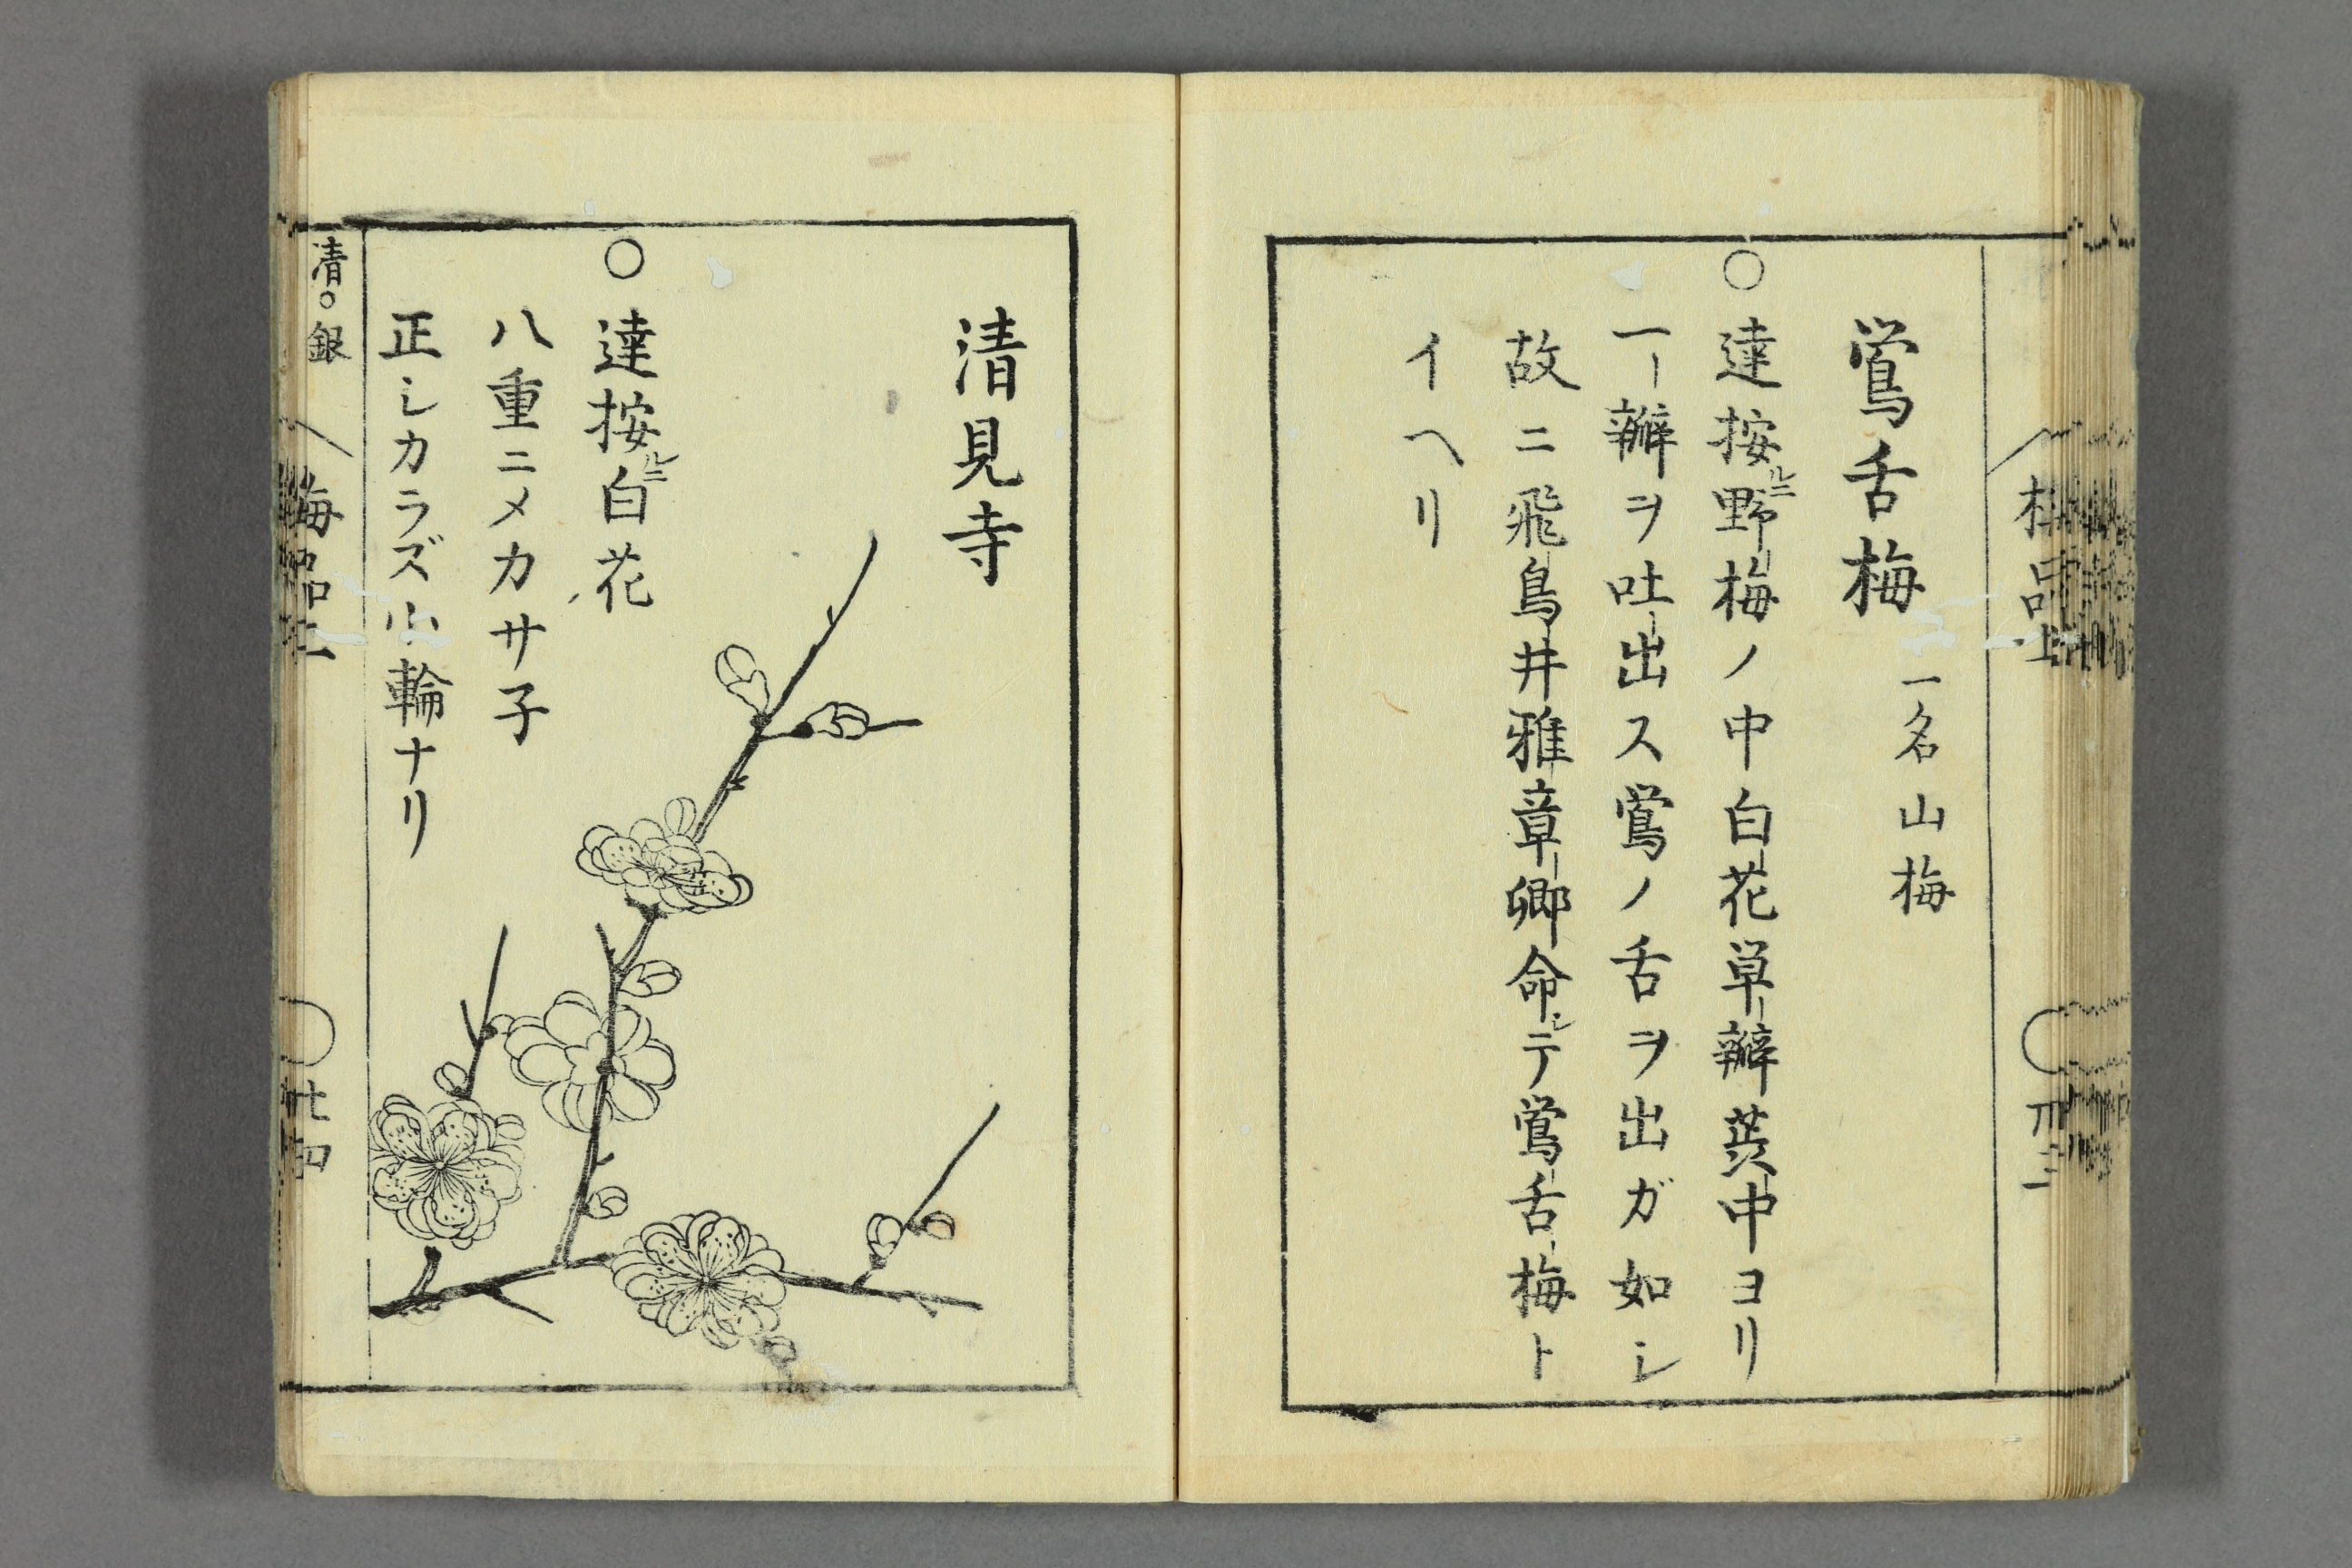 鴬舌梅 一名山梅
○達按ルニ野梅ノ中白花単辦蕊中ヨリ
一辦ヲ吐出ス鴬ノ舌ヲ出ガ如シ
故ニ飛鳥井雅章卿命シテ鴬舌梅ト
イヘリ
清見寺
○達按ルニ白花
八重ニメカサ子
正シカラズ小輪ナリ
清○銀
梅品上